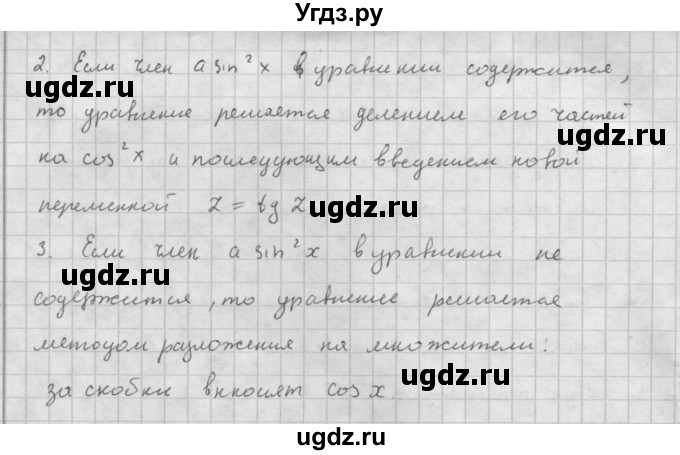 Угдз.ру
2. Если член a sin²x в уравнении содержится,
ugdz.ru ugdz.ru
то уравнение решается делением его частей
ugdz.ru
на cos²x и последующим введением новой
переменной z = tg z
ugdz.ru
3. Если член a sin²x в уравнении не
ugdz.ru
содержится, то уравнение решается
методом разложения на множители:
ugdz.ru
за скобки вкносят cos x.
ugdz.ru
ugdz.ru